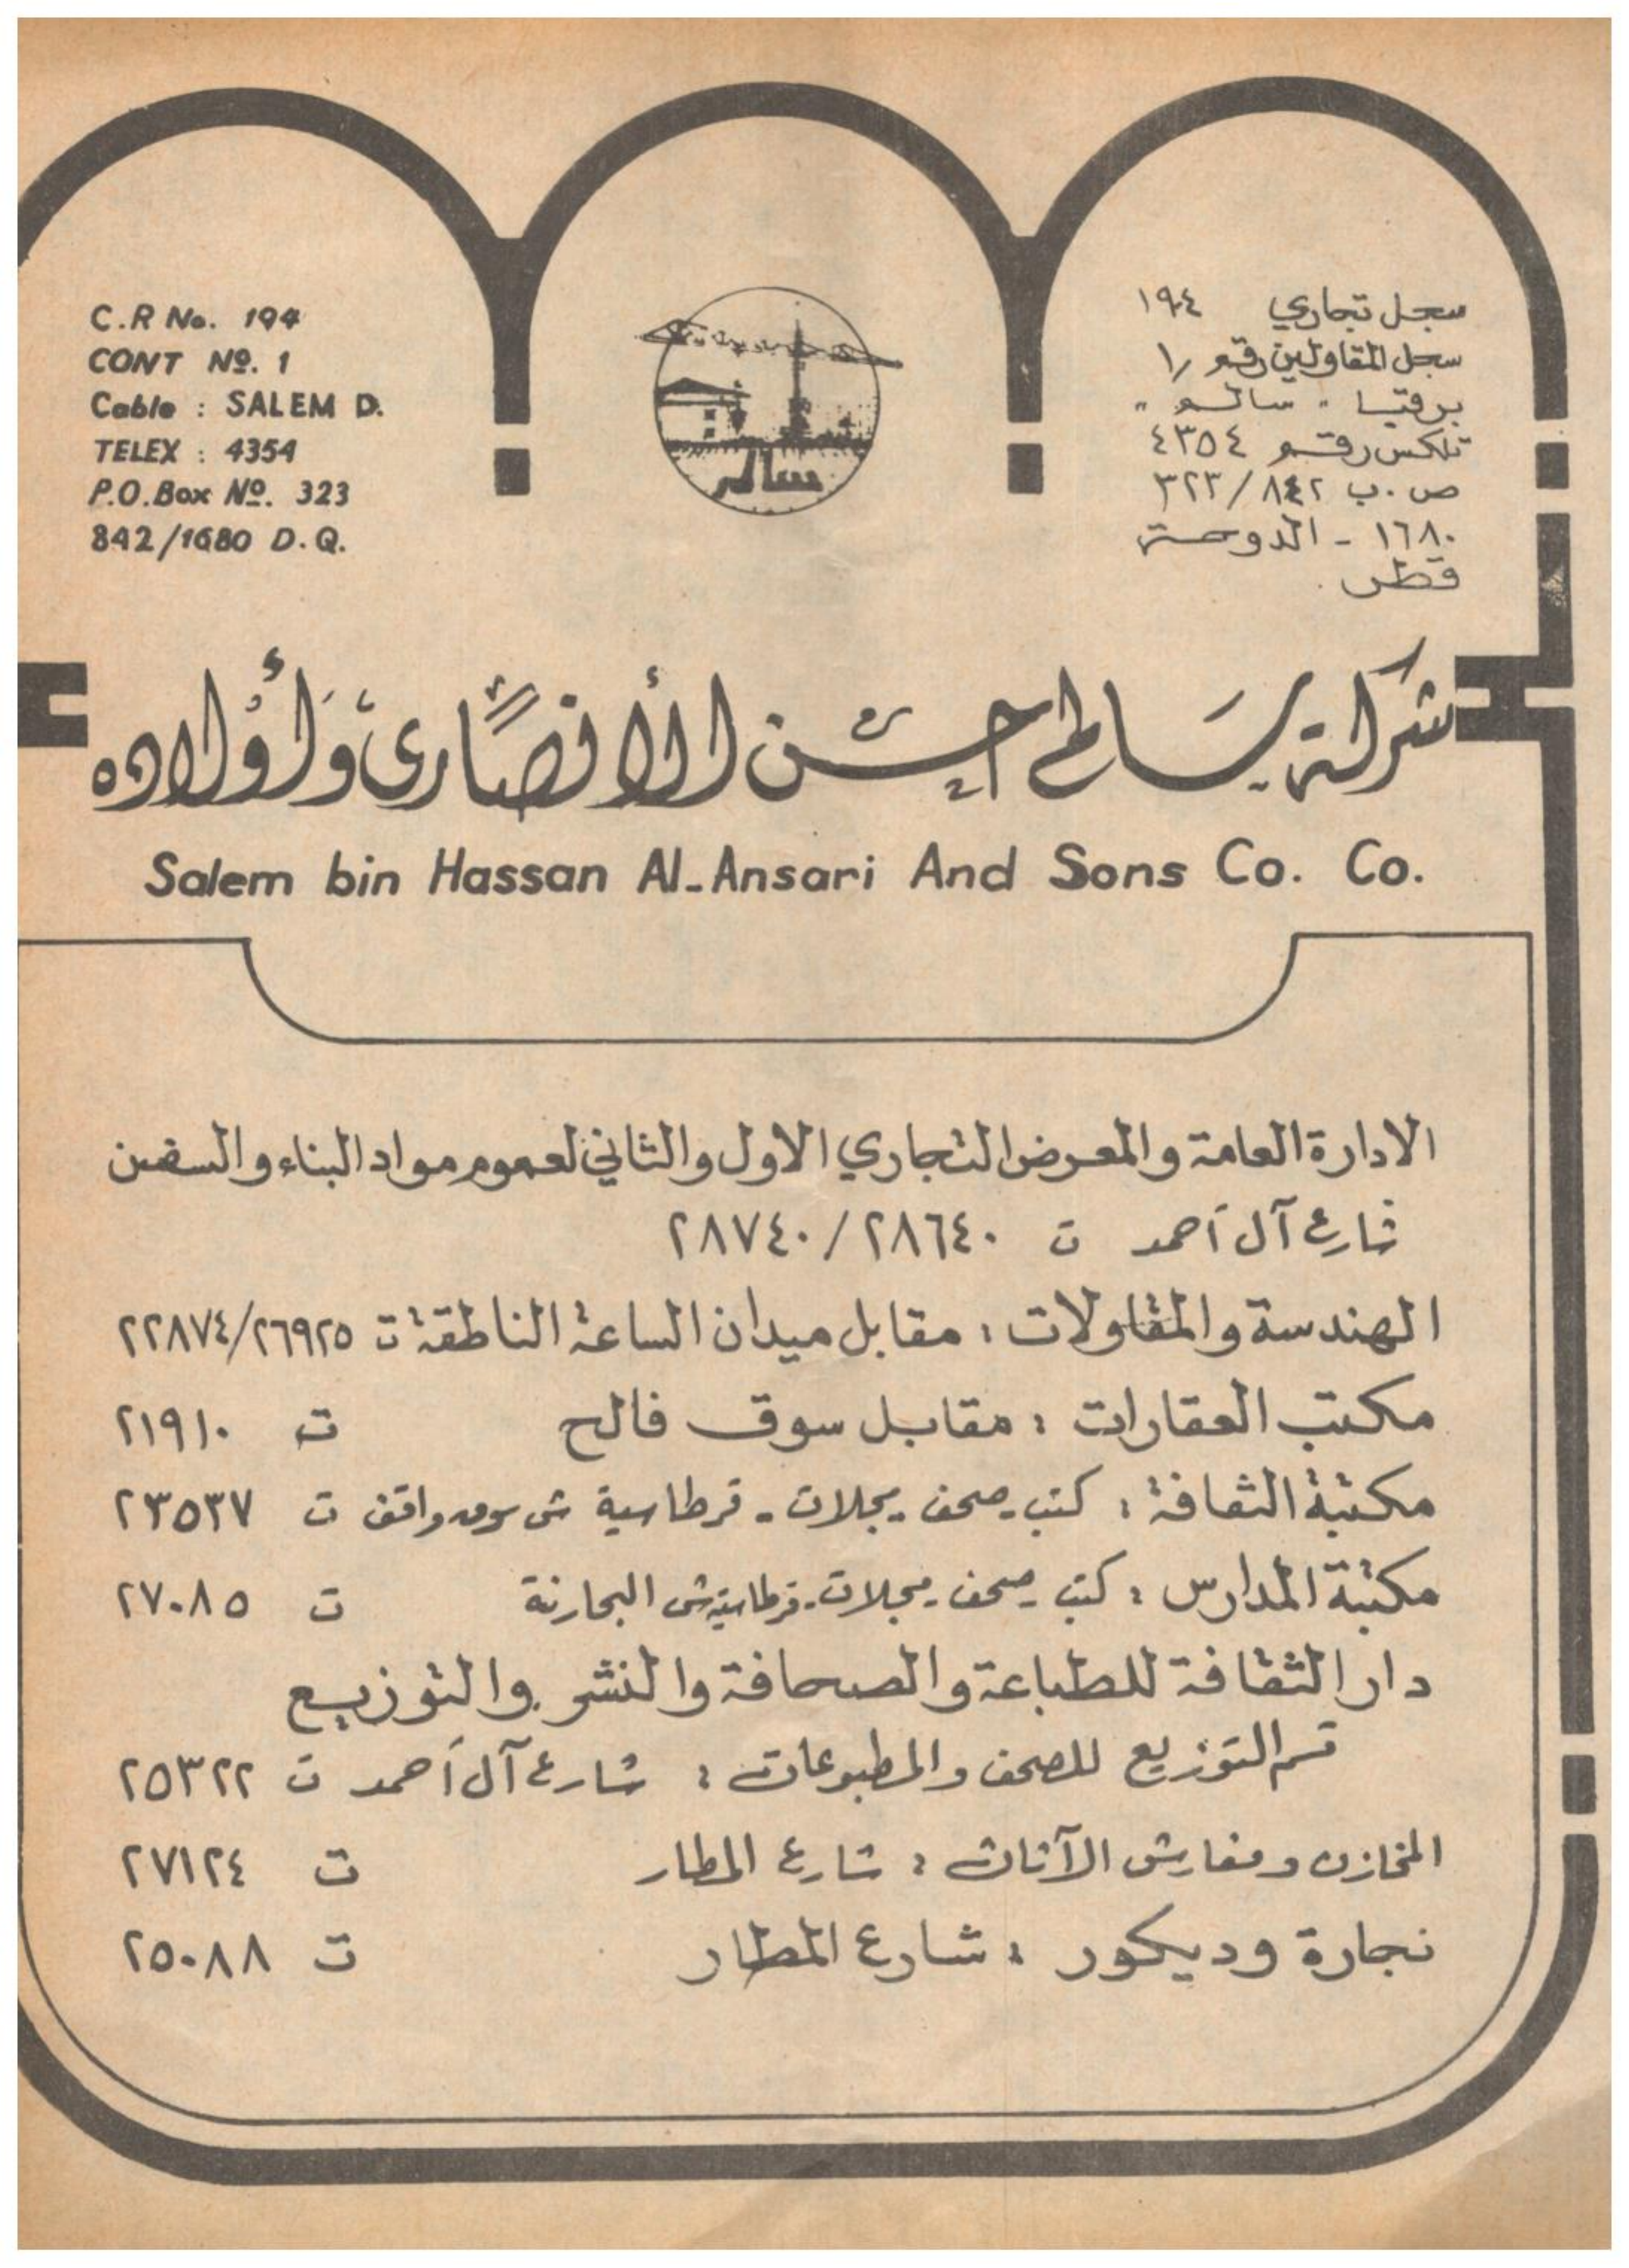 C.R No. 194
CONT Nº. 1
Cable : SALEM D.
TELEX : 4354
P.O.Box Nº. 323
842/1680 D.Q.
سجل تجاري ١٩٤
سجل المقاولين رقم ١/
برقيا " سالم "
تلكس رقم ٤٣٥٤
ص.ب ٣٢٣/٨٤٢
١٦٨٠ - الدوحة
قطر.
سالم
شركة سالم حسن الأنصاري وأولاده
Salem bin Hassan Al-Ansari And Sons Co. Co.
الادارة العامة والمعرض التجاري الاول والثاني لعموم مواد البناء والسفن
شارع آل أحمد ت ٢٨٧٤٠/٢٨٦٤٠
الهندسة والمقاولات : مقابل ميدان الساعة الناطقة ت ٢٢٨٧٤/٢٦٩٢٥
مكتب العقارات : مقابل سوق فالح ت ٢١٩١٠
مكتبة الثقافة : كتب - صحف - مجلات - قرطاسية ش سوق واقف ت ٢٣٥٣٧
مكتبة المدارس : كتب - صحف - مجلات - قرطاسية ش البحارنة ت ٢٧٠٨٥
دار الثقافة للطباعة والصحافة والنشر والتوزيع
قسم التوزيع للصحف والمطبوعات : شارع آل أحمد ت ٢٥٣٢٢
المخازن ومفارش الآثاث : شارع المطار ت ٢٧١٢٤
نجارة وديكور : شارع المطار ت ٢٥٠٨٨